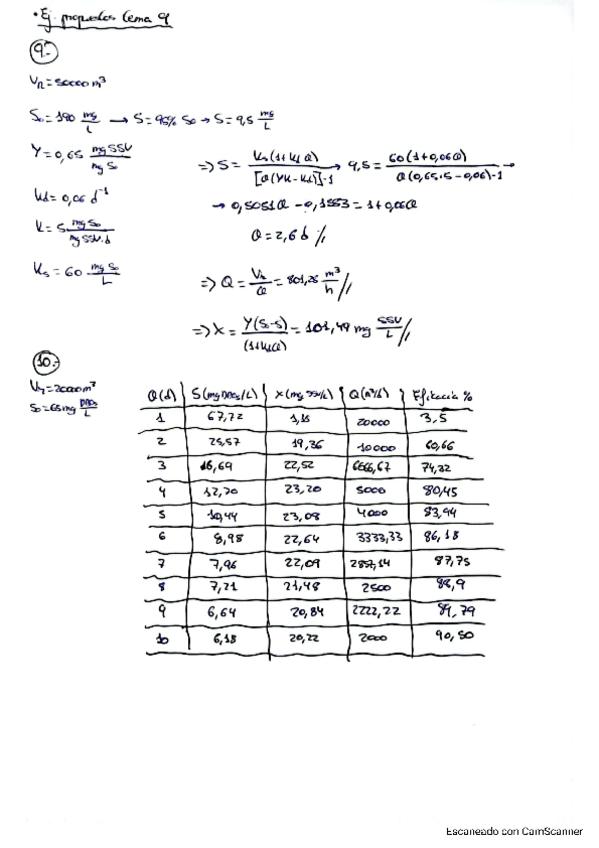 • Ej. propuestos tema 9
9.-
Vr = 50000 m³
S₀ = 190 mg/L → S = 95% S₀ → S = 9,5 mg/L
Y = 0,65 mg SSV / mg S₀
=> S = Ks(1+kd θ) / [θ(Yk - kd)]-1 → 9,5 = 60(1+0,06θ) / θ(0,65·5 - 0,06)-1 →
kd = 0,06 d⁻¹
→ 0,5051θ - 0,1583 = 1+0,06θ
k = 5 mg S₀ / mg SSV·d
θ = 2,6 d //
Ks = 60 mg S₀ / L
=> Q = Vr / θ = 801,28 m³/h //
=> X = Y(S₀-S) / (1+kd θ) = 101,49 mg SSV/L //
10.-
Vr = 20000 m³
S₀ = 65 mg DBO₅/L
θ(d) S(mg DBO₅/L) X(mg SSV/L) Q(m³/d) Eficacia %
1 67,72 1,15 20000 3,5
2 25,57 19,36 10000 60,66
3 16,69 22,52 6666,67 74,32
4 12,70 23,20 5000 80,45
5 10,44 23,08 4000 83,94
6 8,98 22,64 3333,33 86,18
7 7,96 22,09 2857,14 87,75
8 7,21 21,48 2500 88,9
9 6,64 20,84 2222,22 89,79
10 6,18 20,22 2000 90,50
Escaneado con CamScanner